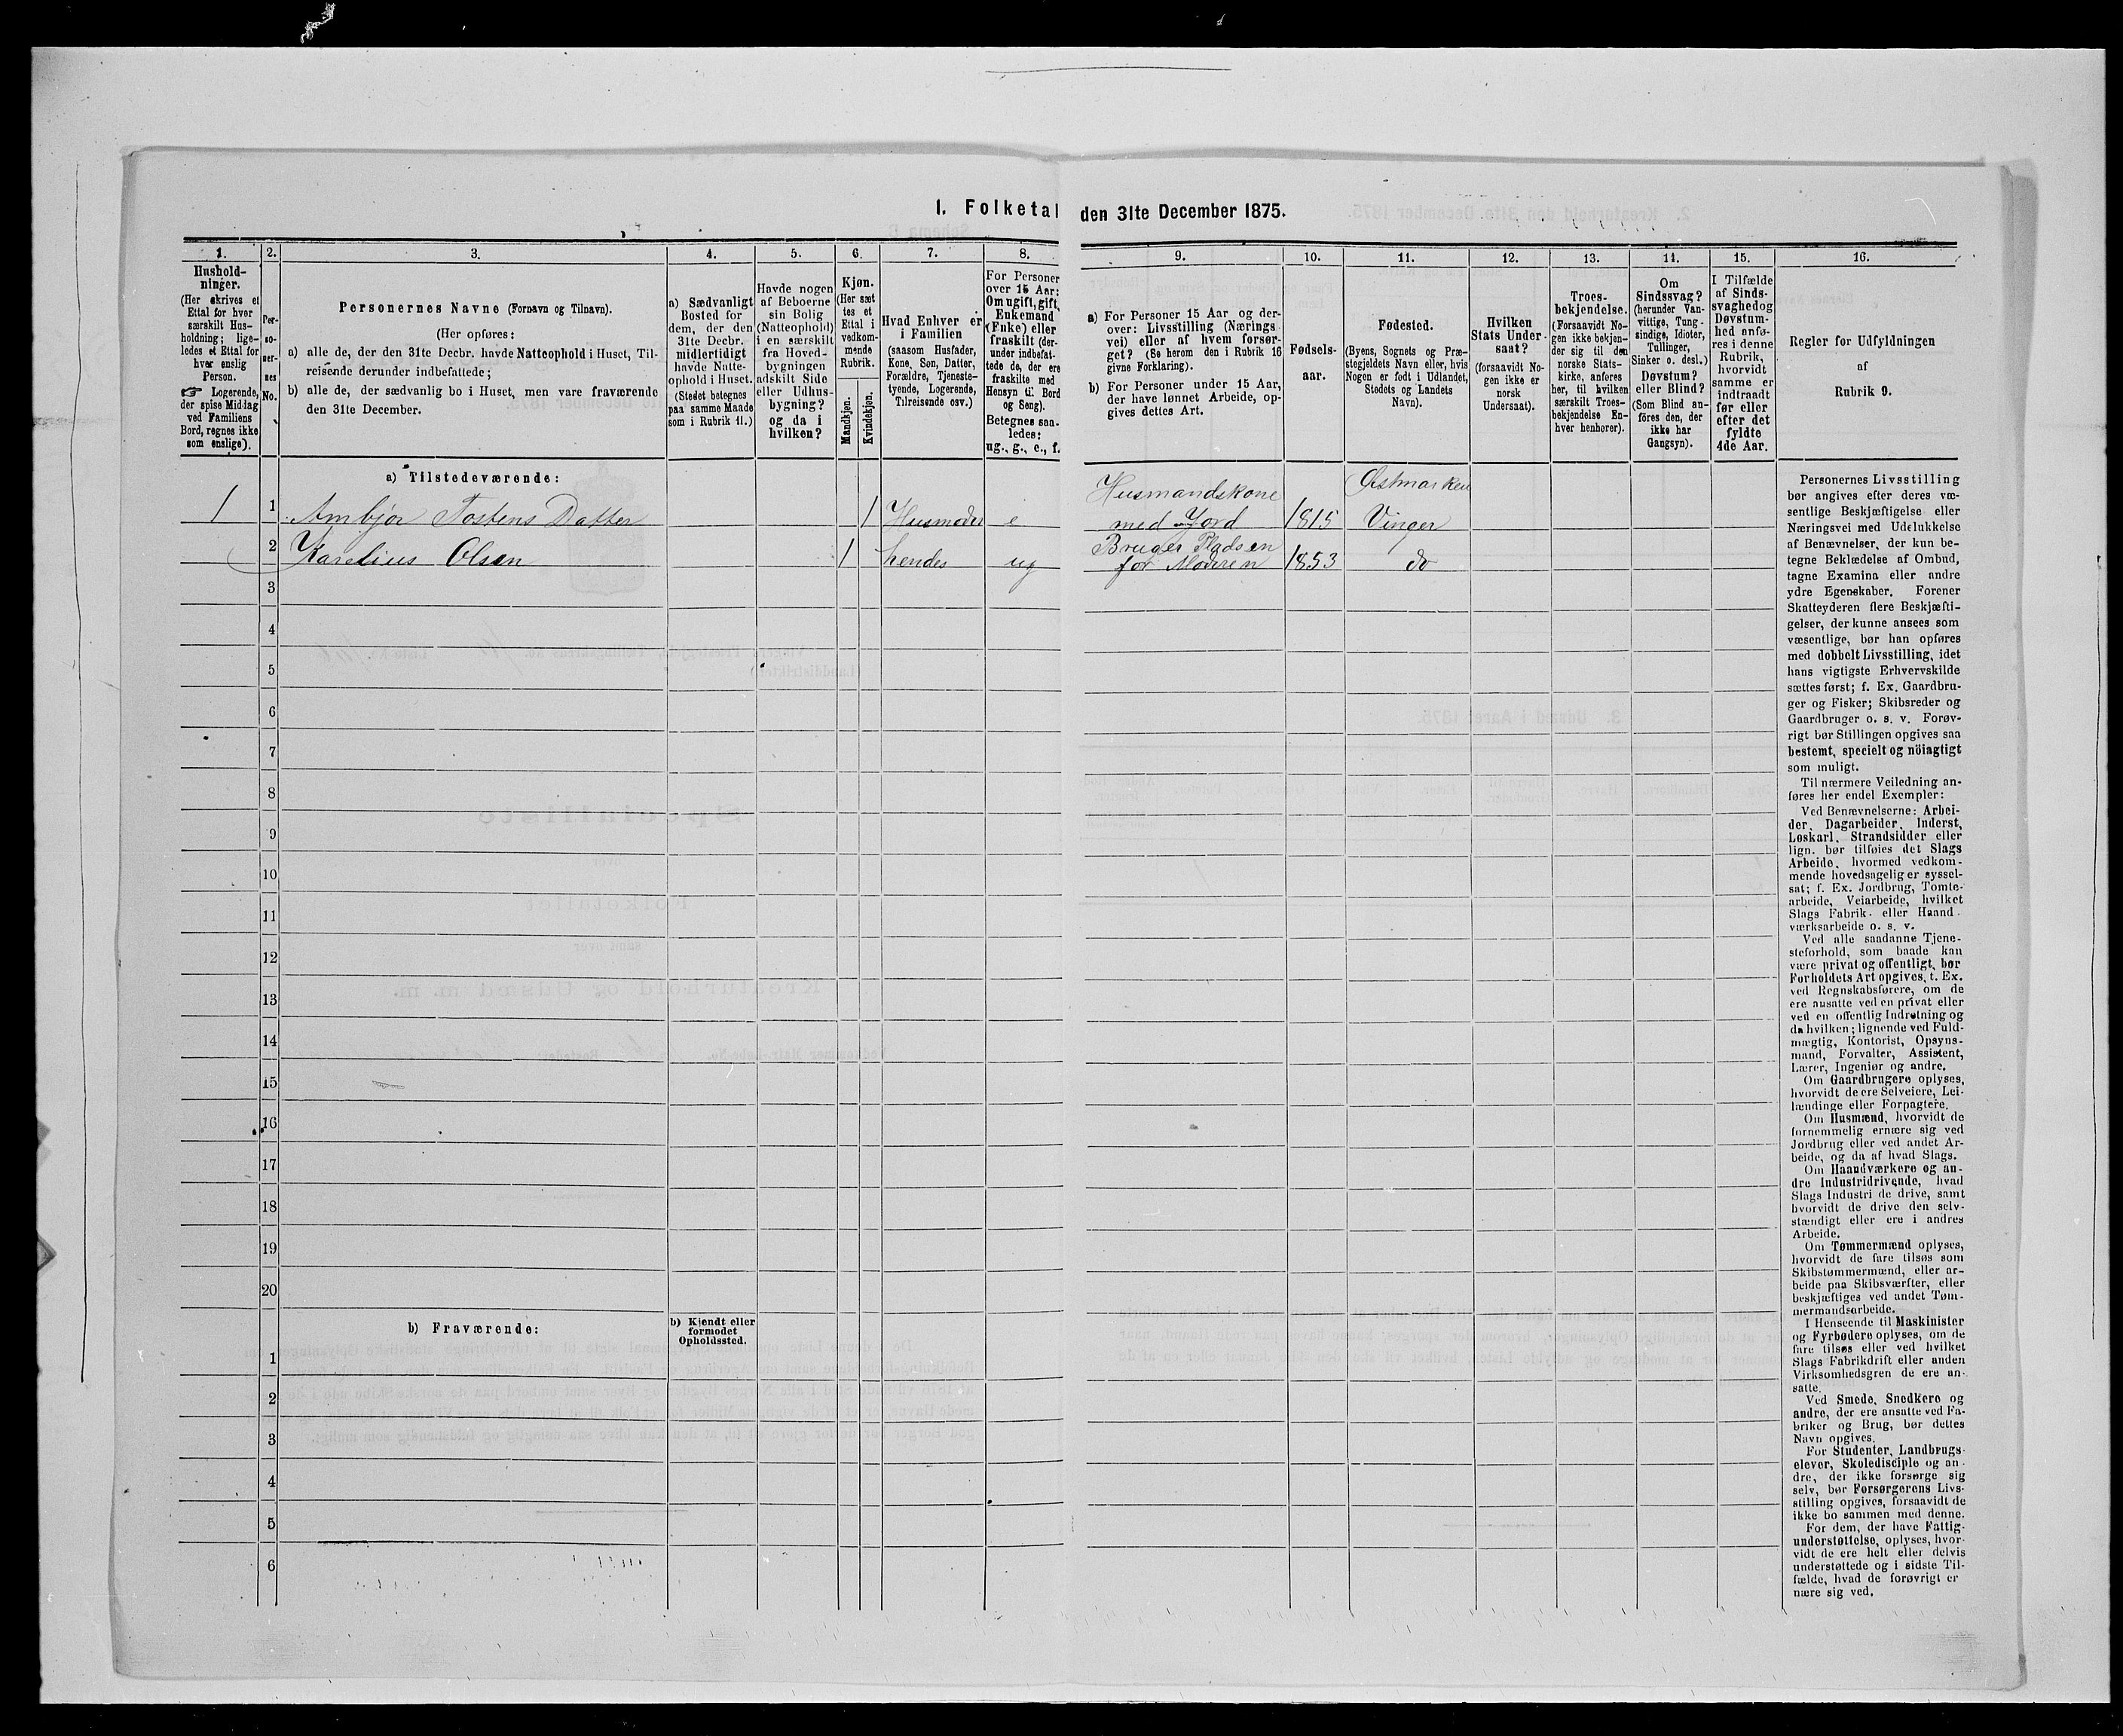 1. Folketal den 31te December 1875.
1.
Hushold-
ninger.
(Her skrives et
Ettal for hver
særskilt Hus-
holdning; lige-
ledes et Ettal for
hver enslig
Person.
☞ Logerende,
der spise Middag
ved Familiens
Bord, regnes ikke
som enslige).
2.
Per-
so-
ner-
nes
No.
3.
Personernes Navne (Fornavn og Tilnavn).
(Her opføres:
a) alle de, der den 31te Decbr. havde Natteophold i Huset, Til-
reisende derunder indbefattede;
b) alle de, der sædvanlig bo i Huset, men vare fraværende
den 31te December.
4.
a) Sædvanligt
Bosted for
dem, der den
31te Decbr.
midlertidigt
havde Natte-
ophold i Huset.
(Stedet betegnes
paa samme Maade
som i Rubrik 11.)
5.
Havde nogen
af Beboerne
sin Bolig
(Natteophold)
i en særskilt
fra Hoved-
bygningen
adskilt Side
eller Udhus-
bygning?
og da i
hvilken?
6.
Kjøn.
(Her sæt
tes et
Ettal i
vedkom-
mende
Rubrik.
Mandkjøn.
Kvindekjøn.
7.
Hvad Enhver er
i Familien
(saasom Husfader,
Kone, Søn, Datter,
Forældre, Tjeneste-
tyende, Logerende,
Tilreisende osv.)
8.
For Personer
over 15 Aar:
Om ugift, gift,
Enkemand
(Enke) eller
fraskilt (der-
under indbefat-
tede de, der ere
fraskilte med
Hensyn til Bord
og Seng).
Betegnes saa-
ledes:
ug., g., e., f.
9.
a) For Personer 15 Aar og der-
over: Livsstilling (Nærings
vei) eller af hvem forsør-
get? (Se herom den i Rubrik 16
givne Forklaring).
b) For Personer under 15 Aar,
der have lønnet Arbeide, op-
gives dettes Art.
10.
Fødsels-
aar.
11.
Fødested.
(Byens, Sognets og Præ-
stegjeldets Navn eller, hvis
Nogen er født i Udlandet,
Stedets og Landets
Navn).
12.
Hvilken
Stats Under-
saat?
(forsaavidt No-
gen ikke er
norsk
Undersaat).
13.
Troes-
bekjendelse.
(Forsaavidt No-
gen ikke bekjen-
der sig til den
norske Stats-
kirke, anføres
her, til hvilken
særskilt Troes-
bekjendelse En-
hver henhører).
14.
Om
Sindssvag?
(herunder Van-
vittige, Tung-
sindige, Idioter,
Tullinger,
Sinker o. desl.)
Døvstum?
eller Blind?
(Som Blind an-
føres den, der
ikke har
Gangsyn).
15.
I Tilfælde
af Sinds-
svaghed og
Døvstum-
hed anfø-
res i denne
Rubrik,
hvorvidt
samme er
indtraadt
før eller
efter det
fyldte
4de Aar.
16.
Regler for Udfyldningen
af
Rubrik 9.
a) Tilstedeværende:
1 1 Ambjør Tostens Datter 1 Husmoder e Husmandskone med Jord 1815 Østmarken Vinger
2 Karelius Olsen 1 hendes ug Bruger Pladsen for Moderen 1853 do
3
4
5
6
7
8
9
10
11
12
13
14
15
16
17
18
19
20
b) Fraværende:
b) Kjendt eller
formodet
Opholdssted.
1
2
3
4
5
6
Personernes Livsstilling
bør angives efter deres væ-
sentlige Beskjæftigelse eller
Næringsvei med Udelukkelse
af Benævnelser, der kun be-
tegne Beklædelse af Ombud,
tagne Examina eller andre
ydre Egenskaber. Forener
Skatteyderen flere Beskjæfti-
gelser, der kunne ansees som
væsentlige, bør han opføres
med dobbelt Livsstilling, idet
hans vigtigste Erhvervskilde
sættes først; f. Ex. Gaardbru-
ger og Fisker; Skibsreder og
Gaardbruger o. s. v. Forøv-
rigt bør Stillingen opgives saa
bestemt, specielt og nöiagtigt
som muligt.
Til nærmere Veiledning an-
føres her endel Exempler:
Ved Benævnelserne: Arbei-
der, Dagarbeider, Inderst,
Løskarl, Strandsidder eller
lign. bør tilføies det Slags
Arbeide, hvormed vedkom-
mende hovedsagelig er syssel-
sat; f. Ex. Jordbrug, Tomte-
arbeide, Veiarbeide, hvilket
Slags Fabrik- eller Haand-
værksarbeide o. s. v.
Ved alle saadanne Tjene-
steforhold, som baade kan
være privat og offentligt, bør
Forholdets Art opgives, f. Ex.
ved Regnskabsførere, om de
ere ansatte ved en privat eller
ved en offentlig Indretning og
da hvilken; lignende ved Fuld-
mægtig, Kontorist, Opsyns-
mand, Forvalter, Assistent,
Lærer, Ingeniør og andre.
Om Gaardbrugere oplyses,
hvorvidt de ere Selveiere, Lei-
lændinge eller Forpagtere.
Om Husmænd, hvorvidt de
fornemmelig ernære sig ved
Jordbrug eller ved andet Ar-
beide, og da af hvad Slags.
Om Haandværkere og an-
dre Industridrivende, hvad
Slags Industri de drive, samt
hvorvidt de drive den selv-
stændigt eller ere i andres
Arbeide.
Om Tømmermænd oplyses,
hvorvidt de fare tilsøs som
Skibstømmermænd, eller ar-
beide paa Skibsværfter, eller
beskjæftiges ved andet Tøm-
mermandsarbeide.
I Henseende til Maskinister
og Fyrbødere oplyses, om de
fare tilsøs eller ved hvilket
Slags Fabrikdrift eller anden
Virksomhedsgren de ere an-
satte.
Ved Smede, Snedkere og
andre, der ere ansatte ved Fa-
briker og Brug, bør dettes
Navn opgives.
For Studenter, Landbrugs-
elever, Skoledisciple og an-
dre, der ikke forsørge sig
selv, bør Forsørgerens Livs-
stilling opgives, forsaavidt de
ikke bo sammen med denne.
For dem, der have Fattig-
understøttelse, oplyses, hvor-
vidt de ere helt eller delvis
understøttede og i sidste Til-
fælde, hvad de forøvrigt er
nære sig ved.